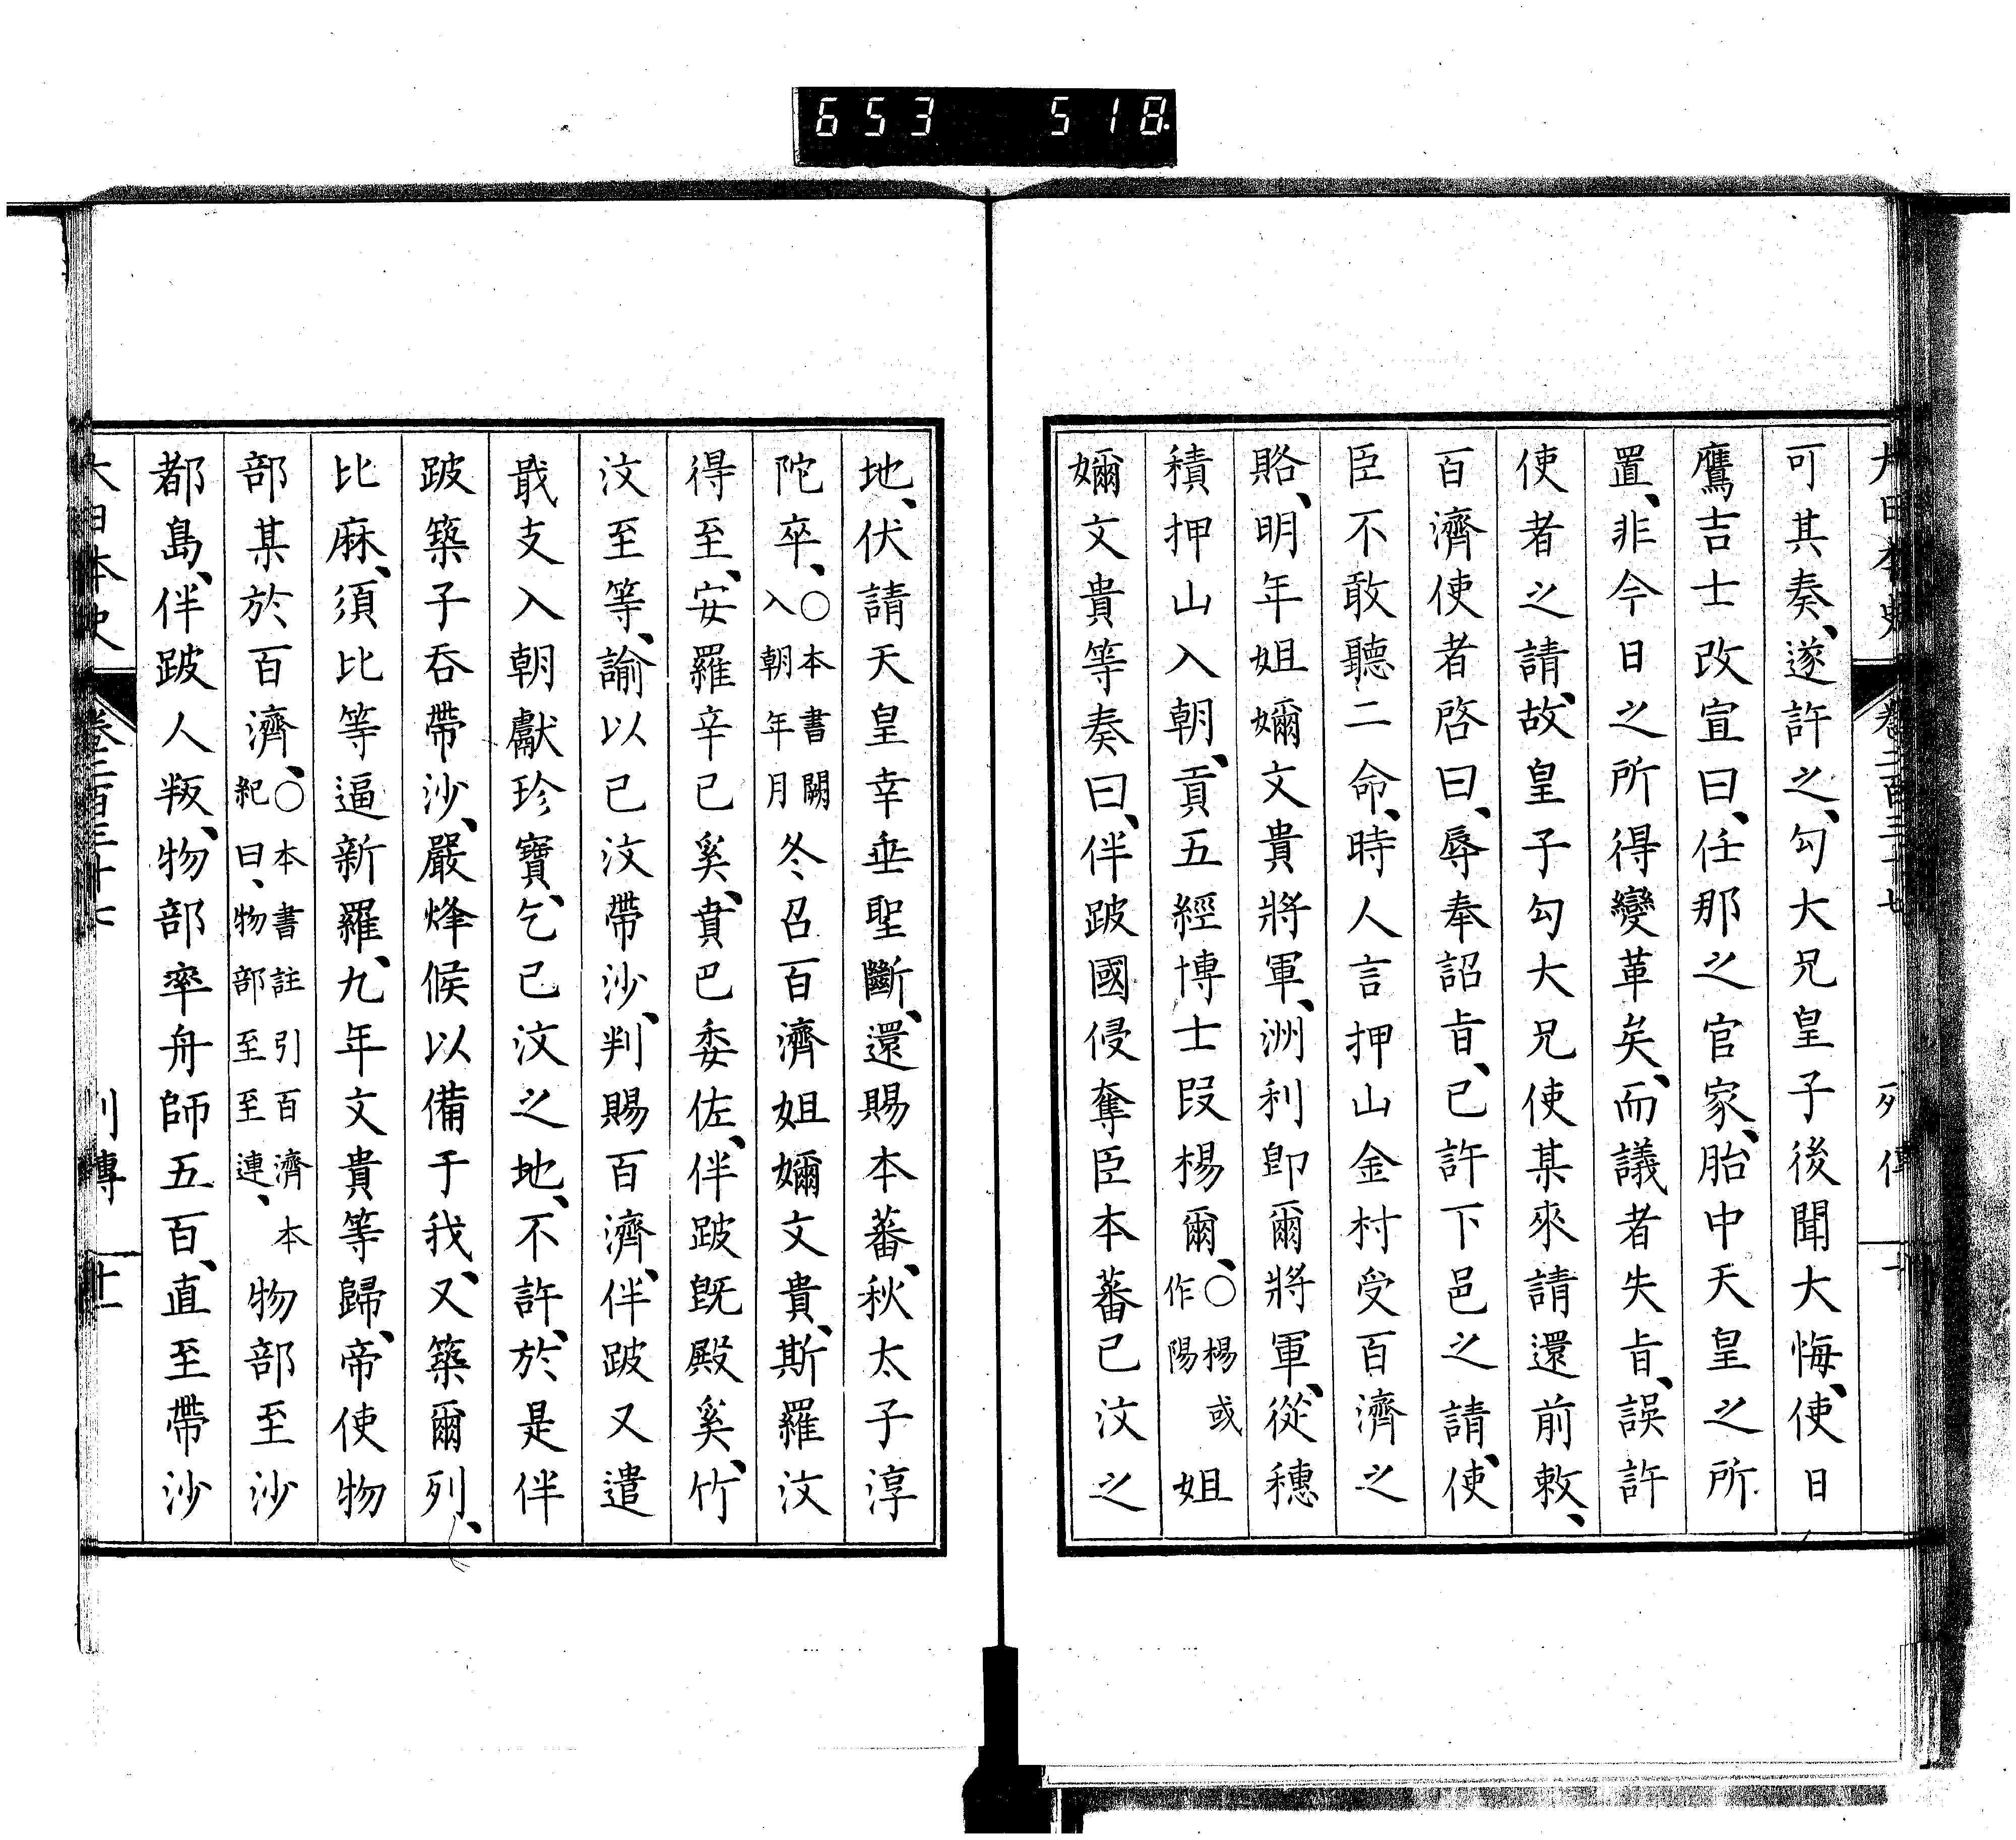 653 518.
大日本史 卷二百三十七 列傳
可其奏、遂許之、勾大兄皇子後聞大悔、使日
鷹吉士改宣曰、任那之官家、胎中天皇之所
置、非今日之所得變革矣、而議者失旨、誤許
使者之請、故皇子勾大兄使某來請還前敕、
百濟使者啓曰、辱奉詔旨、已許下邑之請、使
臣不敢聽二命、時人言押山金村受百濟之
賂、明年姐彌文貴將軍、洲利卽爾將軍、從穗
積押山入朝、貢五經博士段楊爾、○楊或作陽姐
彌文貴等奏曰、伴跛國侵奪臣本蕃已汶之
地、伏請天皇幸垂聖斷、還賜本蕃、秋太子淳
陀卒、○本書闕入朝年月冬召百濟姐彌文貴、斯羅汶
得至、安羅辛已奚、賁巴委佐、伴跛旣殿奚、竹
汶至等、諭以已汶帶沙、判賜百濟、伴跛又遣
戢支入朝獻珍寶、乞已汶之地、不許、於是伴
跛築子吞帶沙、嚴烽候以備于我、又築爾列、
比麻、須比等逼新羅、九年文貴等歸、帝使物
部某於百濟、○本書註引百濟本紀曰、物部至至連、物部至沙
都島、伴跛人叛、物部率舟師五百、直至帶沙
大日本史 卷二百三十七 列傳 十一